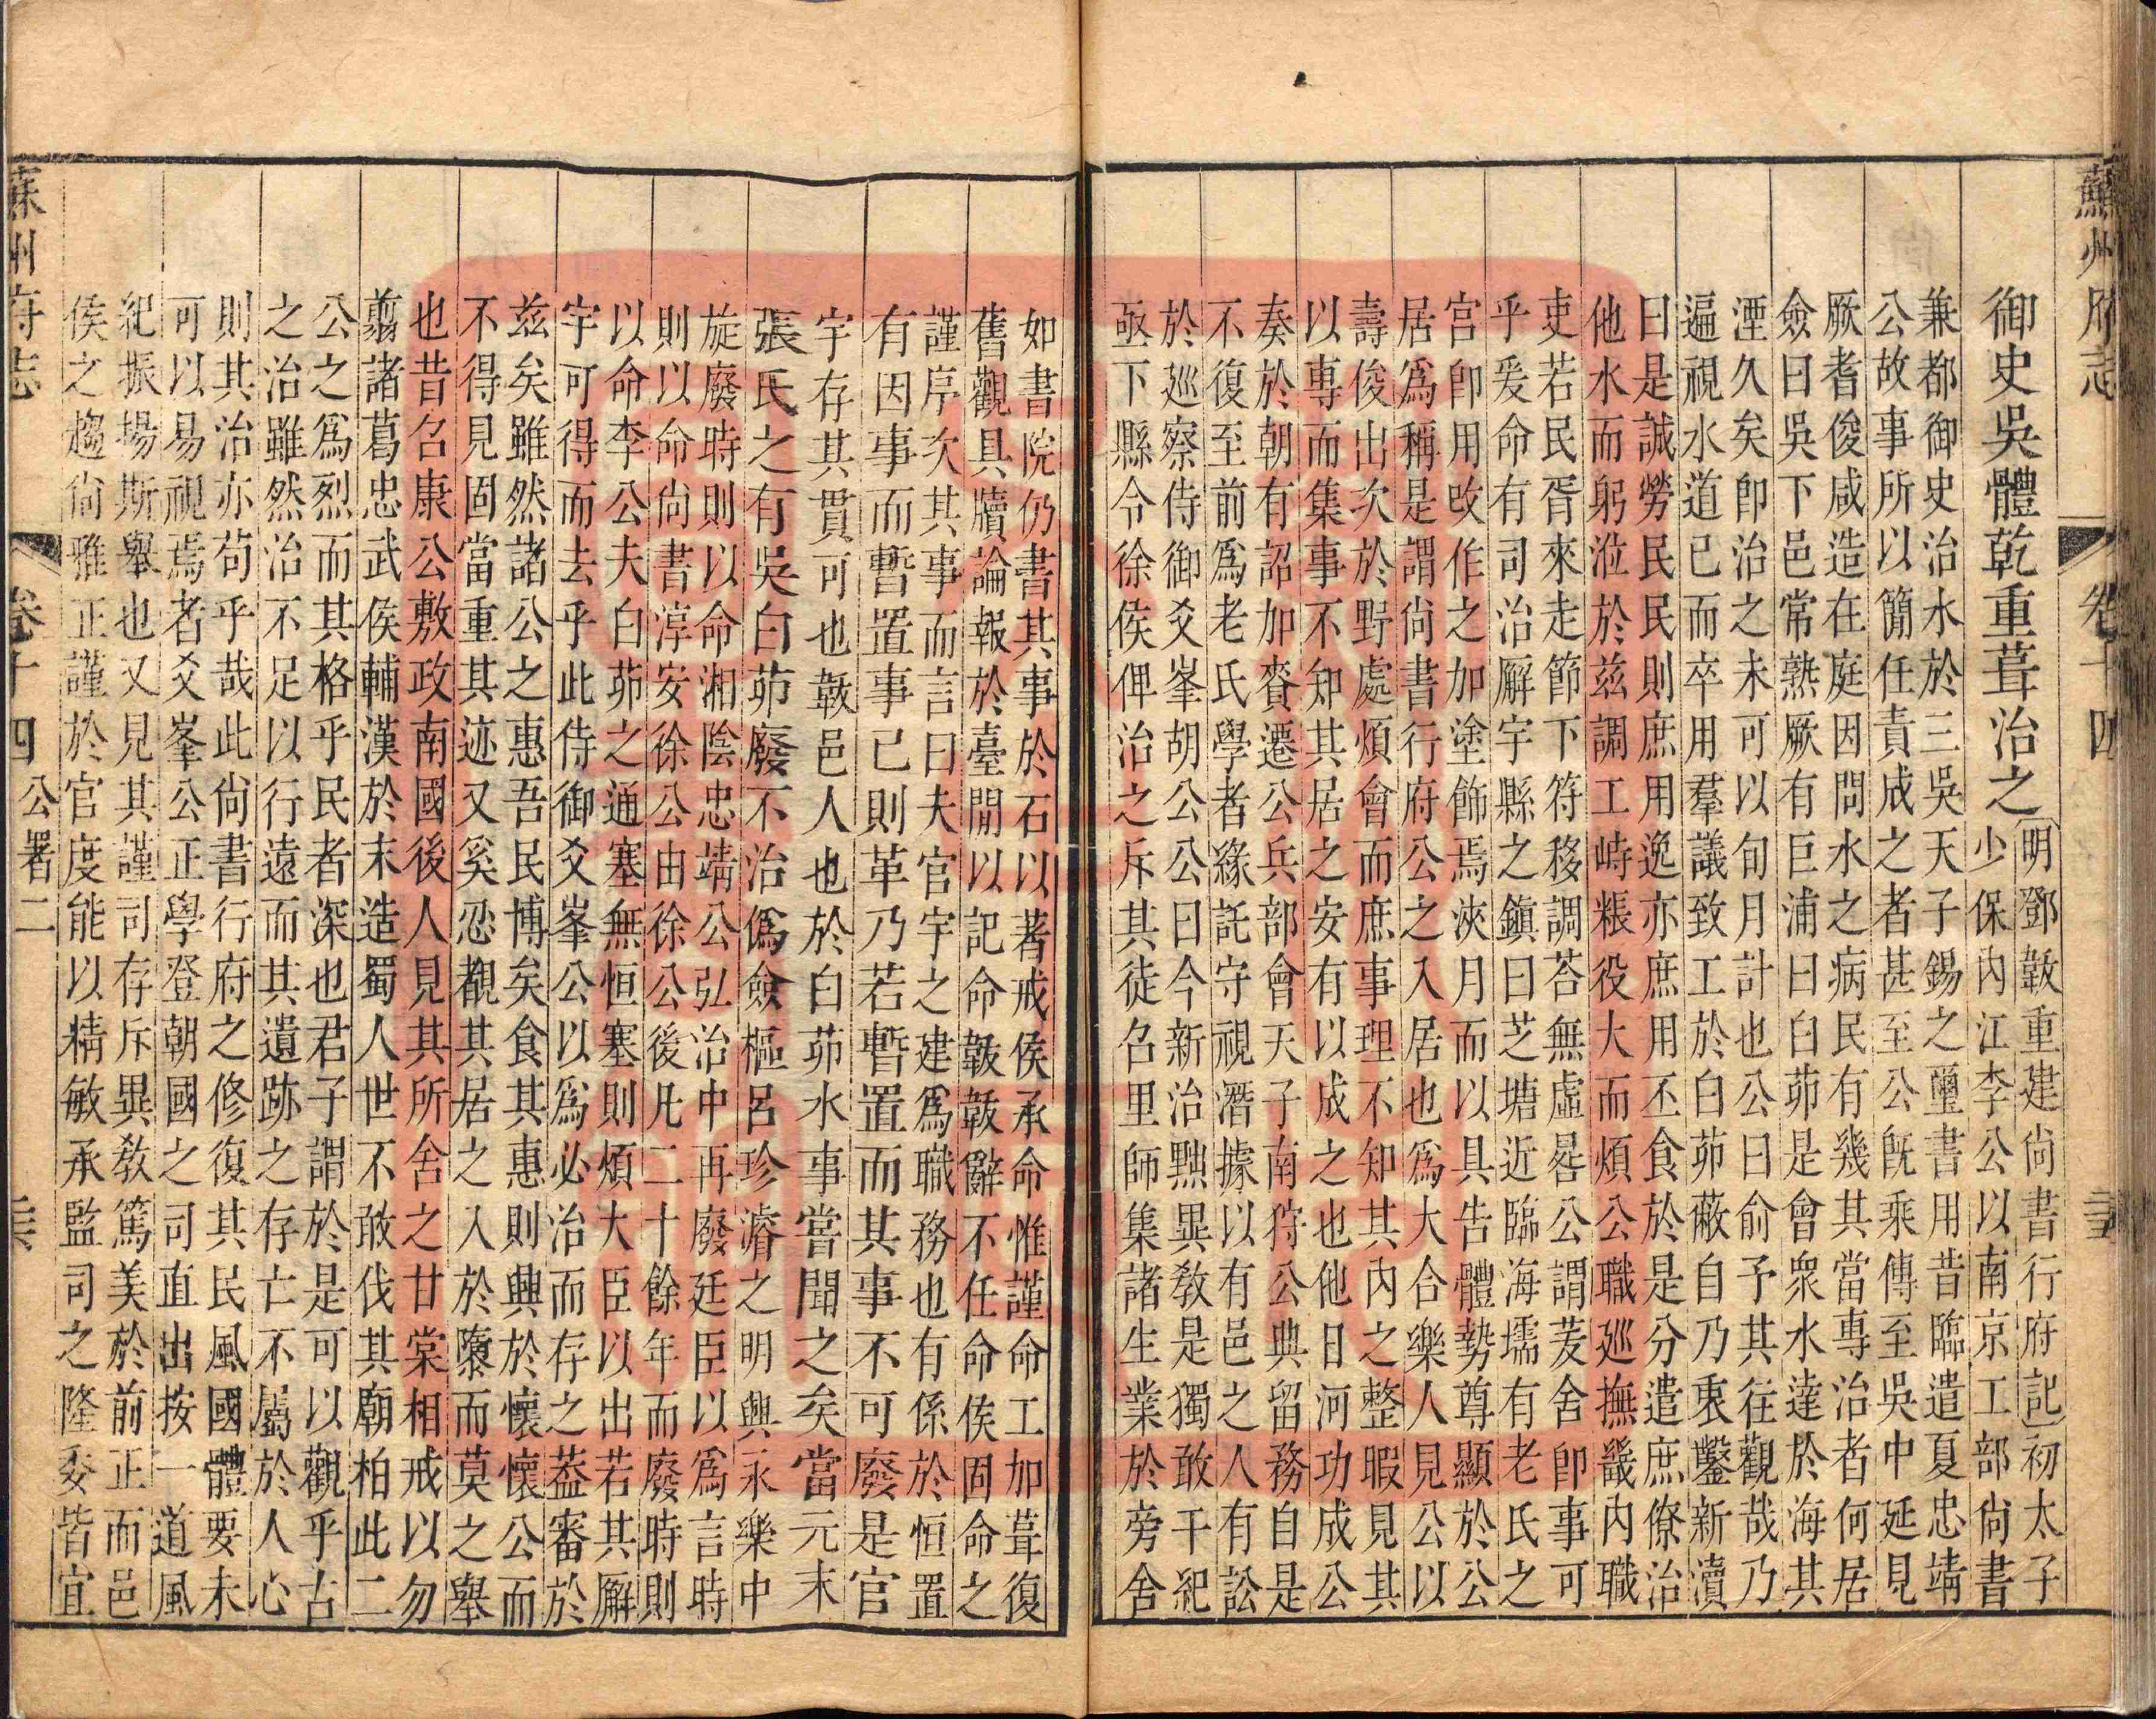 蘇州府志 卷十四
御史吳體乾重葺治之
明鄧韍重建尚書行府記初太子
少保內江李公以南京工部尚書
兼都御史治水於三吳天子錫之璽書用昔臨遣夏忠靖
公故事所以簡任責成之者甚至公旣乘傳至吳中延見
厥耆俊咸造在庭因問水之病民有幾其當專治者何居
僉曰吳下邑常熟厥有巨浦曰白茆是會衆水達於海其
湮久矣卽治之未可以旬月計也公曰俞予其往觀哉乃
遍視水道已而卒用羣議致工於白茆蔽自乃衷鑿新瀆
曰是誠勞民民則庶用逸亦庶用丕食於是分遣庶僚治
他水而躬涖於茲調工峙粻役大而煩公職巡撫畿內職
吏若民胥來走節下符移調荅無虛晷公謂茇舍卽事可
乎爰命有司治廨宇縣之鎮曰芝塘近臨海壖有老氏之
宮卽用改作之加塗飾焉浹月而以具告體勢尊顯於公
居爲稱是謂尚書行府公之入居也爲大合樂人見公以
壽俊出次於野處煩會而庶事理不知其內之整暇見其
以專而集事不知其居之安有以成之也他日河功成公
奏於朝有詔加賚遷公兵部會天子南狩公典留務自是
不復至前爲老氏學者緣託守視潛據以有邑之人有訟
於巡察侍御爻峯胡公公曰今新治黜異敎是獨敢干紀
亟下縣令徐侯俾治之斥其徒召里師集諸生業於旁舍
如書院仍書其事於石以著戒侯承命惟謹命工加葺復
舊觀具牘論報於臺閒以記命韍韍辭不任命侯固命之
謹序次其事而言曰夫官宇之建爲職務也有係於恒置
有因事而暫置事已則革乃若暫置而其事不可廢是官
宇存其貫可也韍邑人也於白茆水事當聞之矣當元末
張氏之有吳白茆廢不治僞僉樞呂珍濬之明興永樂中
旋廢時則以命湘陰忠靖公弘治中再廢廷臣以爲言時
則以命尚書淳安徐公由徐公後凡二十餘年而廢時則
以命李公夫白茆之通塞無恒塞則煩大臣以出若其廨
宇可得而去乎此侍御爻峯公以爲必治而存之葢審於
茲矣雖然諸公之惠吾民博矣食其惠則興於懷懷公而
不得見固當重其迹又奚忍觀其居之入於隳而莫之舉
也昔召康公敷政南國後人見其所舍之甘棠相戒以勿
翦諸葛忠武侯輔漢於末造蜀人世不敢伐其廟柏此二
公之爲烈而其格乎民者深也君子謂於是可以觀乎古
之治雖然治不足以行遠而其遺跡之存亡不屬於人心
則其治亦苟乎哉此尚書行府之修復其民風國體要未
可以易視焉者爻峯公正學登朝國之司直出按一道風
紀振揚斯舉也又見其謹司存斥異敎篤美於前正而邑
侯之趨尚雅正謹於官度能以精敏承監司之隆委皆宜
蘇州府志 卷十四 公署二